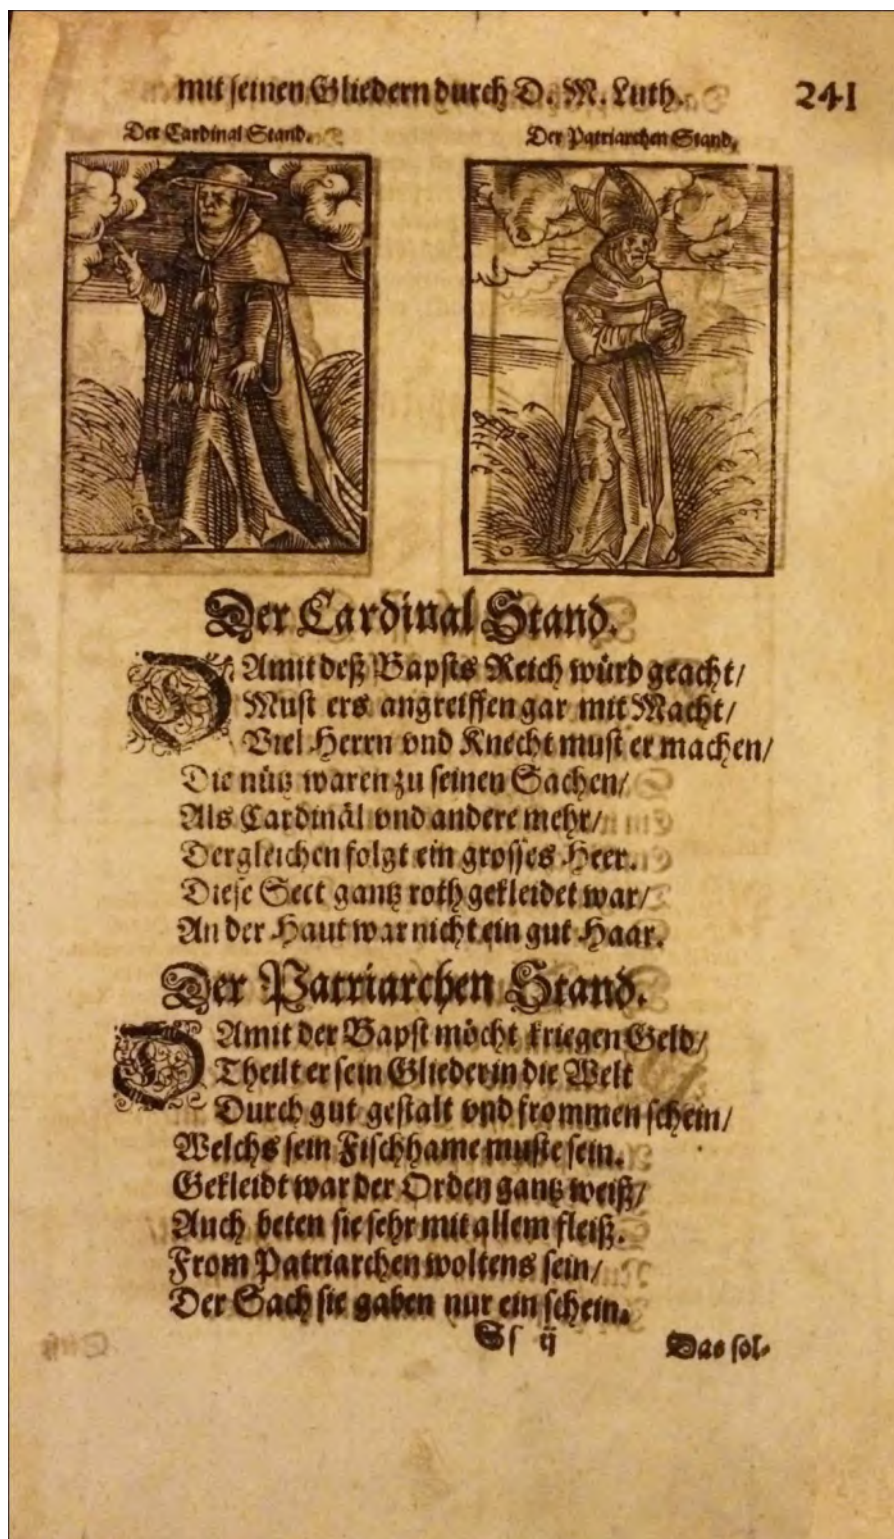 mit seinen Gliedern durch D. M. Luth.
241
Der Cardinal Stand.
Der Patriarchen Stand.
Der Cardinal Stand.
DAmit deß Bapsts Reich würd geacht/
Must ers angreiffen gar mit Macht/
Viel Herrn vnd Knecht must er machen/
Die nütz waren zu seinen Sachen/
Als Cardinäl vnd andere mehr/
Dergleichen folgt ein grosses Heer.
Diese Sect gantz roth gekleidet war/
An der Haut war nicht ein gut Haar.
Der Patriarchen Stand.
DAmit der Bapst möcht kriegen Geld/
Theilt er sein Glieder in die Welt
Durch gut gestalt vnd frommen schein/
Welchs sein Fischhame muste sein.
Gekleidt war der Orden gantz weiß/
Auch beten sie sehr mit allem fleiß.
From Patriarchen woltens sein/
Der Sach sie gaben nur ein schein.
Ss ij
Das sol-